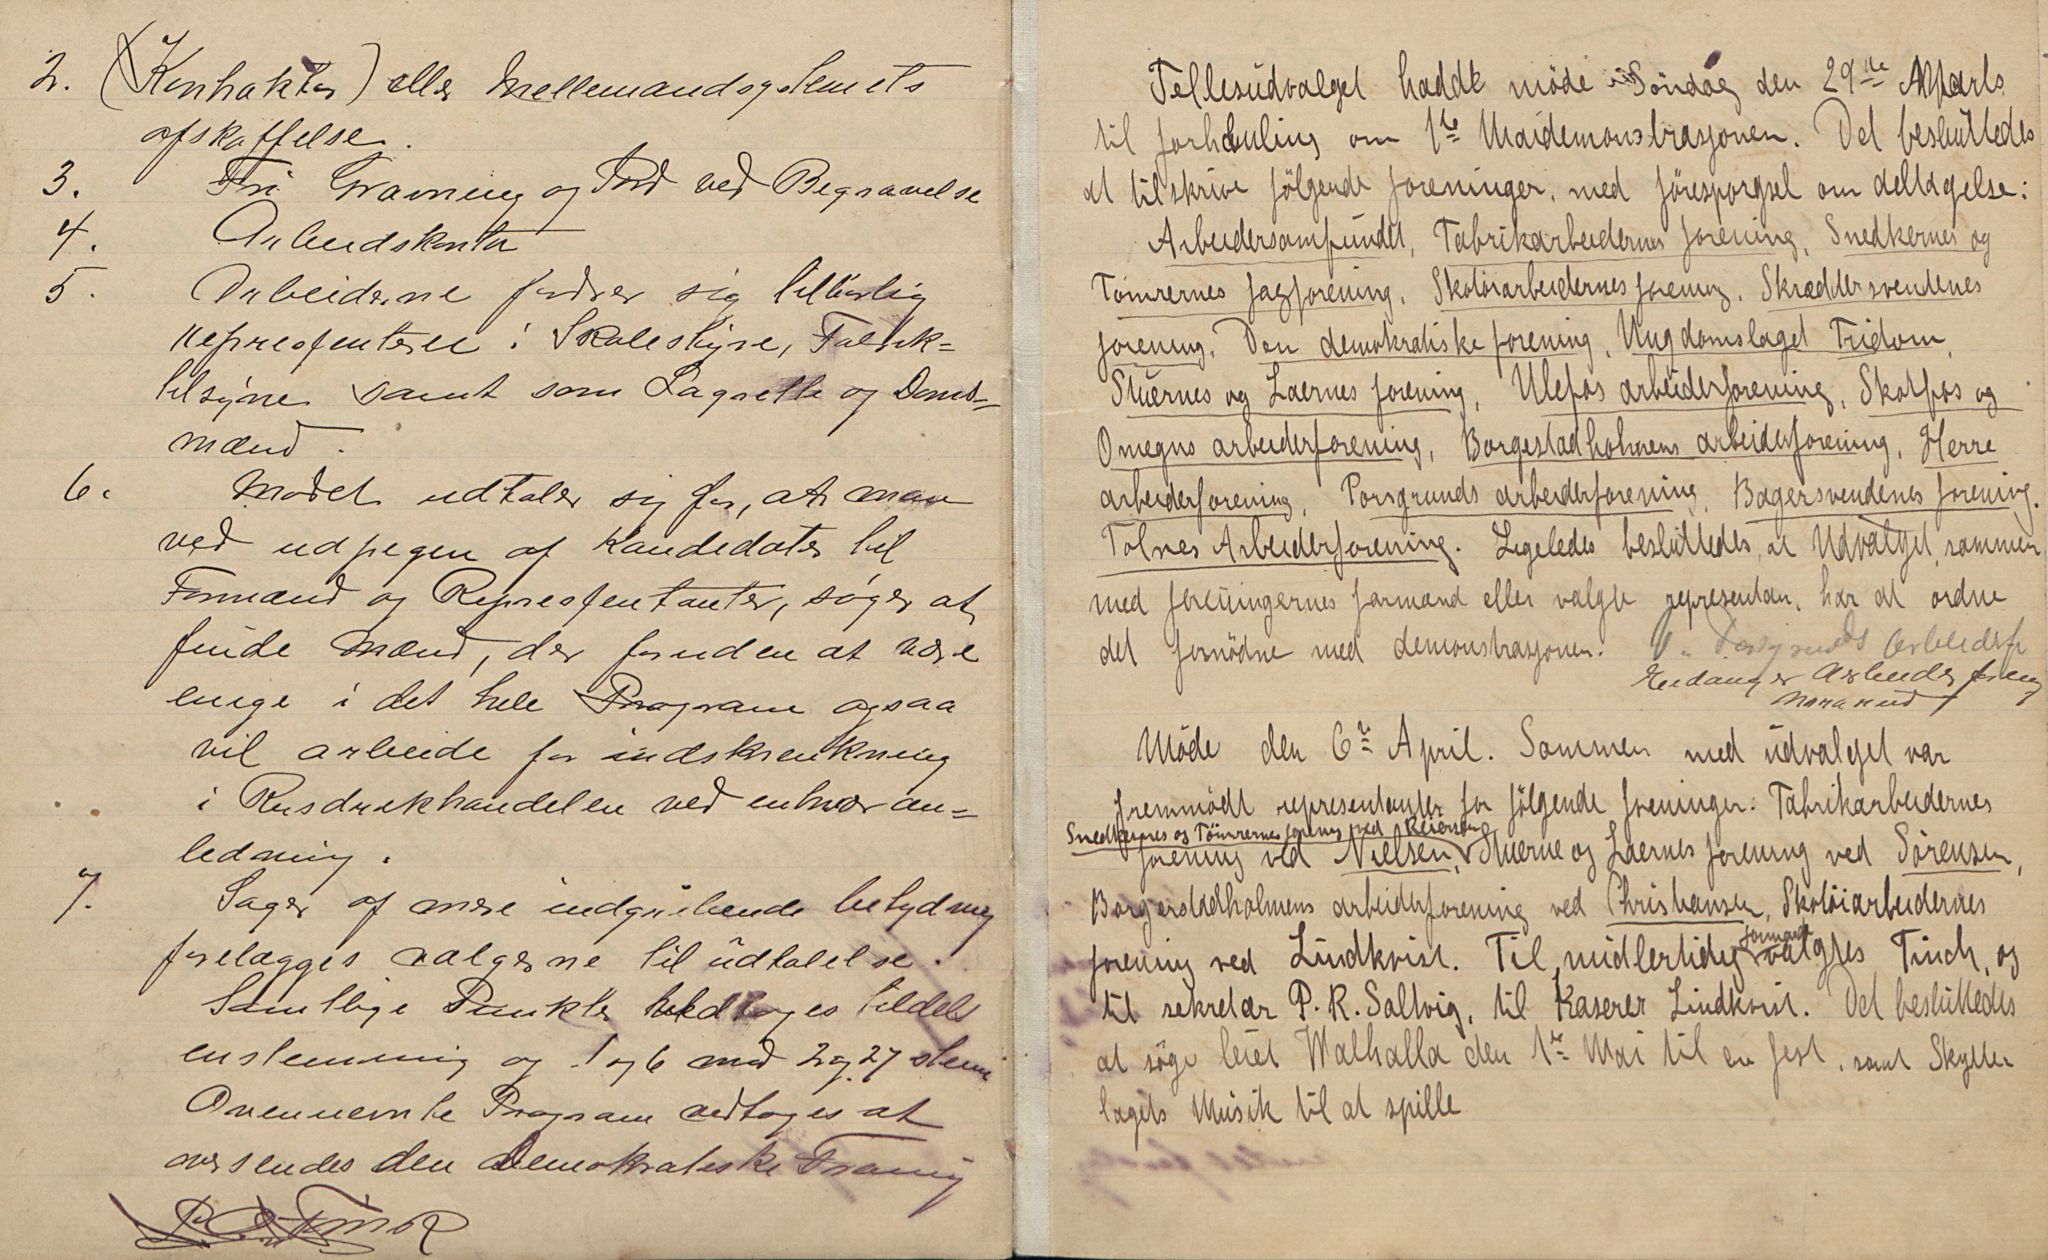 2. (Kontrakter) eller Mellemandsystemets
afskaffelse.
3. Fri Gravning og Jord ved Begravelse
4. Arbeidskontor
5. Arbeiderne fordrer sig tilbørlig
repræsenteret i Skolestyre, Fabrik-
tilsyne samt som Lagrette og Doms-
mænd.
6. Mødet udtaler sig for, at man
ved udpegen af Kandidater til
Formænd og Repræsentanter, søger at
finde Mænd, der foruden at være
enige i det hele Program ogsaa
vil arbeide for indskrænkning
i Rusdrikhandelen ved enhver an-
ledning.
7. Sager af mere indgribende betydning
forelægges vælgerne til udtalelse.
Samtlige Punkter vedtoges tildels
enstemmig og 1 og 6 mod 2 og 27 stem
Ovennevnte Program vedtoges at
oversendes den Demokratiske Forening
Fællesudvalget hadde møde Søndag den 29de Marts
til forhandling om 1te Maidemonstrasjonen. Det besluttedes
at tilskrive følgende foreninger, med førespørgsel om deltagelse:
Arbeidersamfundet, Fabrikarbeidernes forening, Snedkernes og
Tømrernes fagforening, Skotøiarbeidernes forening, Skræddersvendenes
forening, Den demokratiske forening, Ungdomslaget Fridom,
Stuernes og Laernes forening, Ulefos arbeiderforening, Skotfos og
Omegns arbeiderforening, Borgestadholmens arbeiderforening, Herre
arbeiderforening, Porsgrunds arbeiderforening, Bagersvendenes forening.
Tolnes Arbeiderforening. Ligeledes besluttedes, at Udvalget, sammen
med foreningernes formænd eller valgte representan, har at ordne
det fornødne med demonstrasjonen. V. Porsgrunds Arbeiderf
Eidanger Arbeiderforening
Møde den 6te April. Sammen med udvalget var
fremmødt representanter for følgende foreninger: Fabrikarbeidernes
Snedkernes og Tømrernes forening ved Reiersen
forening ved Nielsen, Stuerne og Laernes forening ved Sørensen,
Borgerstadholmens arbeiderforening ved Christiansen, Skotøiarbeidernes
forening ved Lindkvist. Til midlertidig formand valgtes Finch, og
til sekretær P. R. Saltvig, til Kaserer Lindkvist. Det besluttedes
at søge leiet Walhalla den 1te Mai til en fest, samt Skytter
lagets Musik til at spille